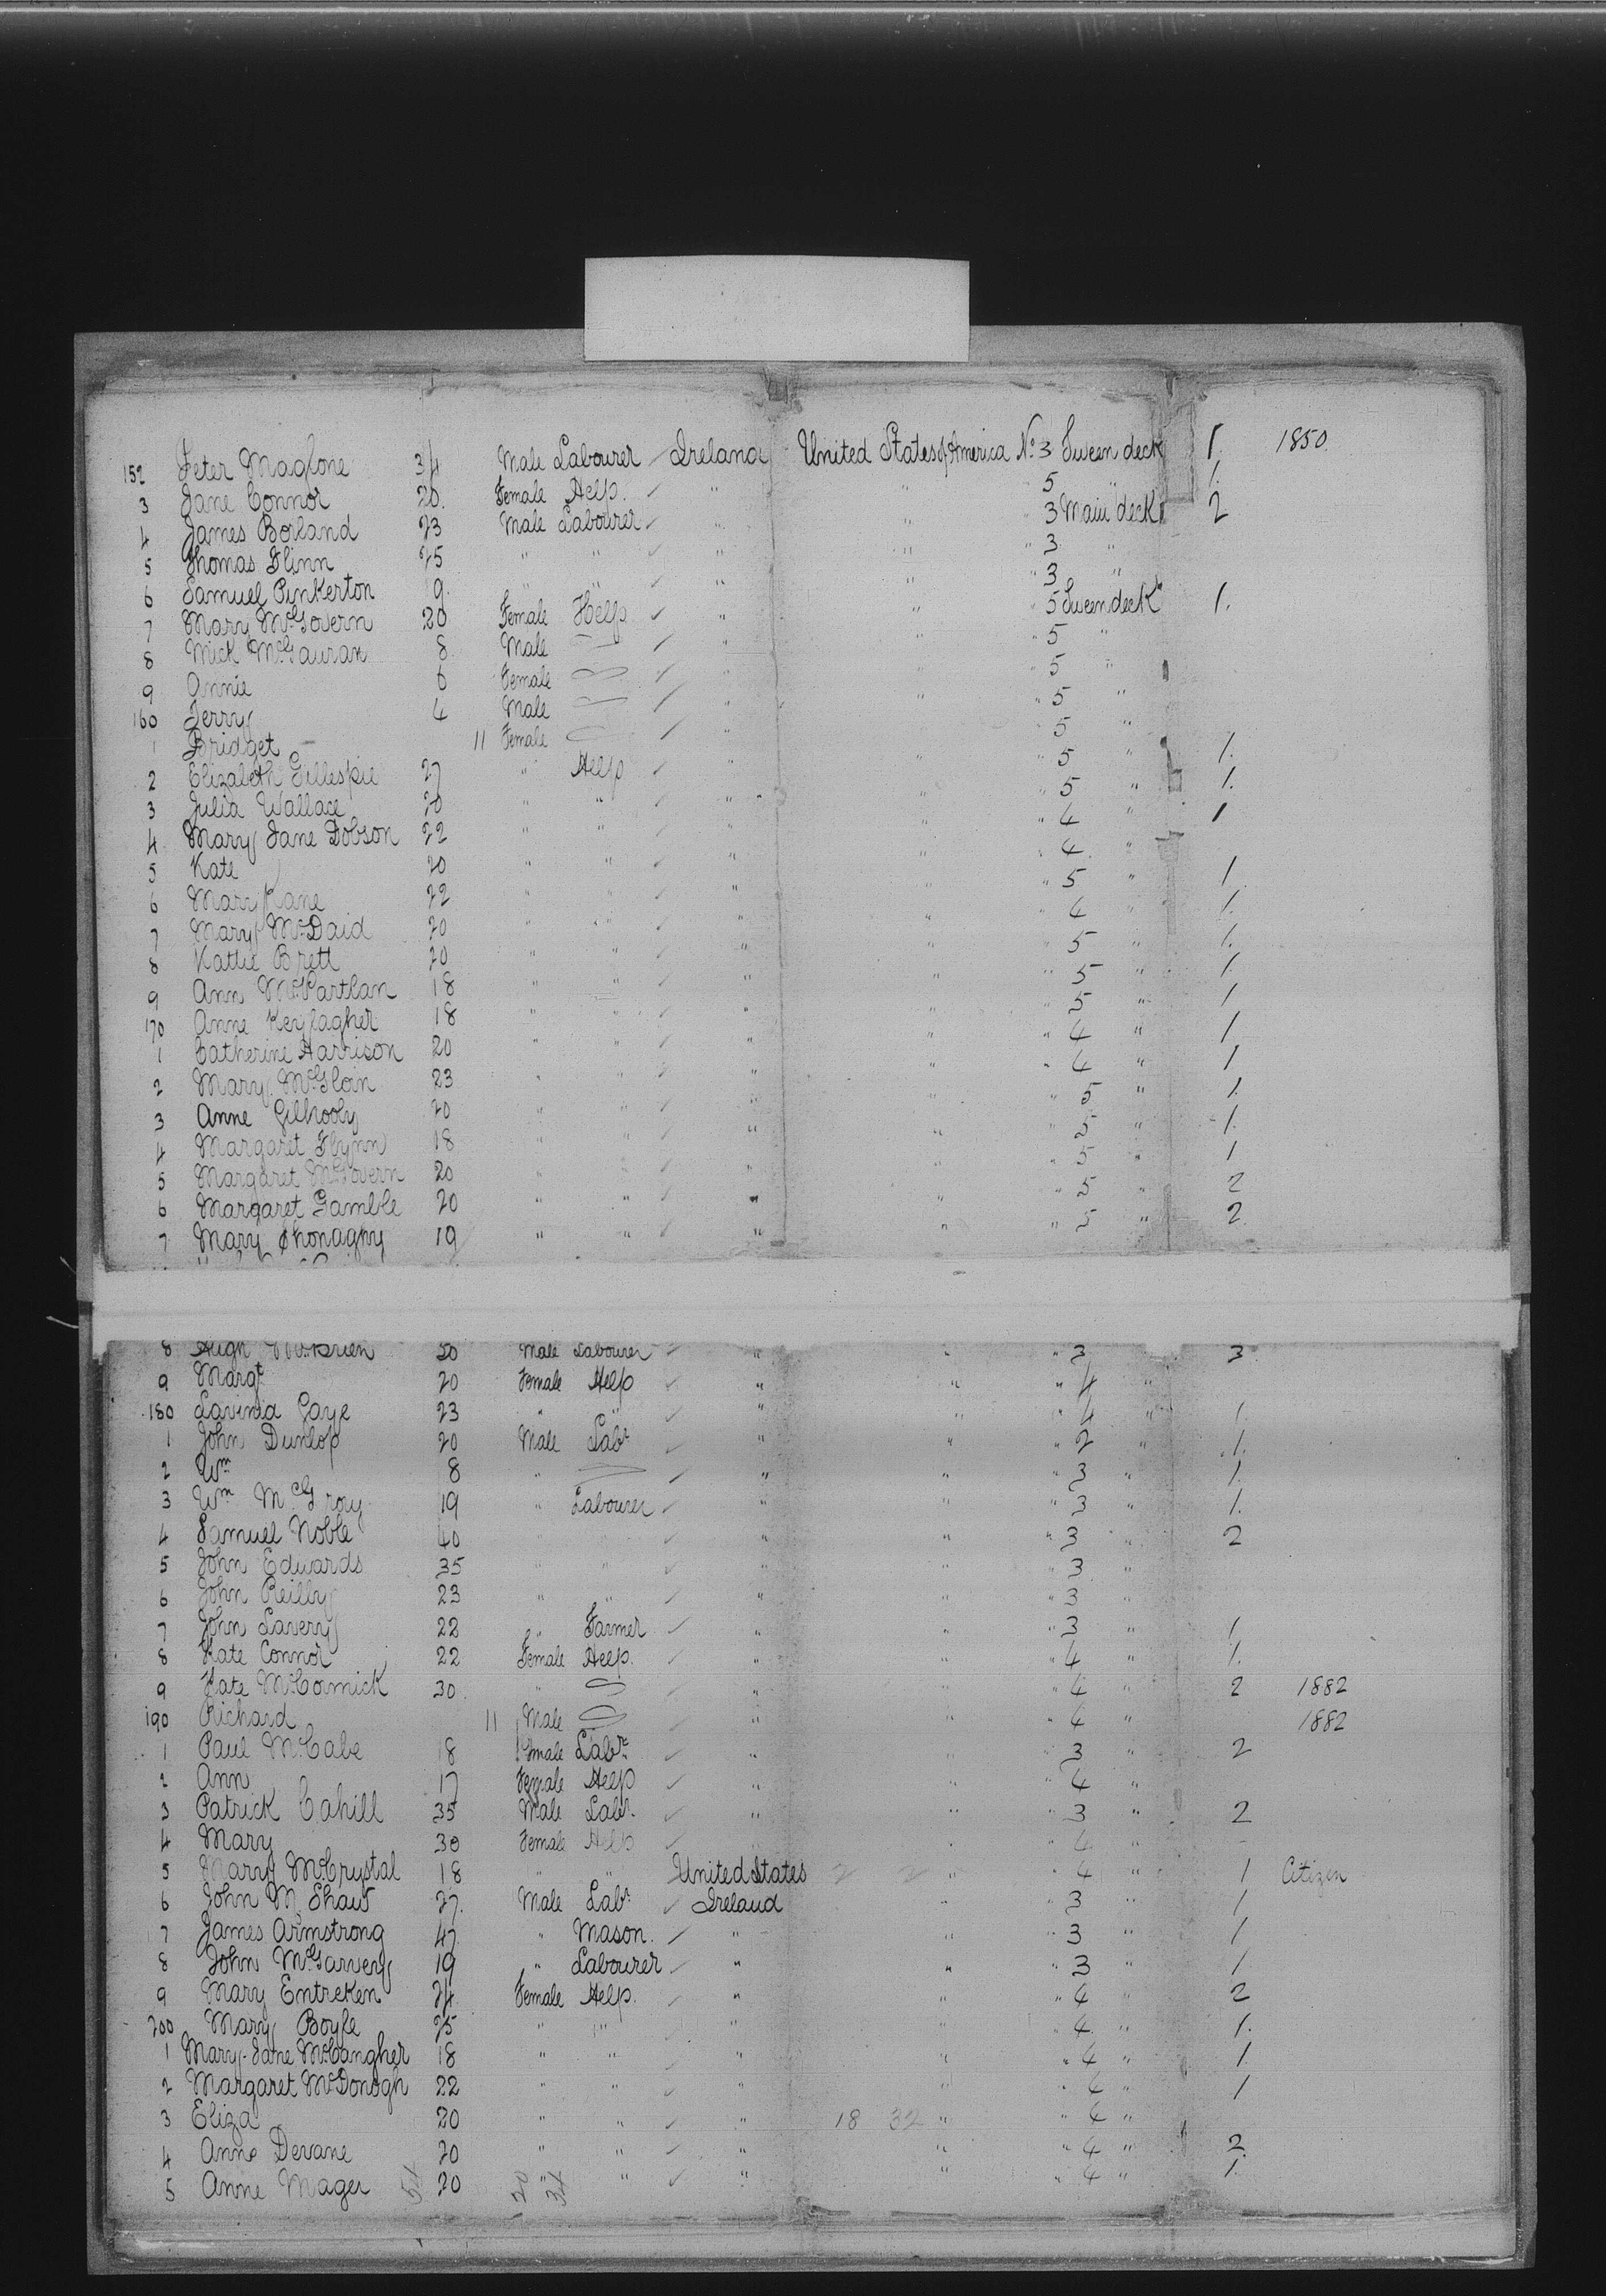 152 Peter Maglone 34 Male Labourer Ireland United States of America No 3 Tween deck 1. 1850
3 Jane Connor 20. Female Help. " " " 5 " 1.
4 James Borland 23 Male Labourer " " " 3 Main deck 2
5 Thomas Flinn 25 " " " " " 3 "
6 Samuel Pinkerton 9 " " " " " 3 "
7 Mary McGovern 20 Female Help " " " 5 Tween deck 1.
8 Mick McGauran 8 Male " " " 5 "
9 Annie 6 Female " " " 5 "
160 Terry 4 Male " " " 5 "
1 Bridget 11 Female " " " 5 "
2 Elizabeth Gilleskie 27 " Help " " " 5 " 1.
3 Julia Wallace 20 " " " " " 5 " 1.
4 Mary Jane Dobson 22 " " " " " 4 " 1
5 Kate 20 " " " " " 4 "
6 Mary Kane 22 " " " " " 5 " 1
7 Mary McDaid 20 " " " " " 4 " 1.
8 Kattie Brett 20 " " " " " 5 " 1.
9 Ann McPartlan 18 " " " " " 5 " 1.
170 Anne 18 " " " " " 5 " 1
1 Catherine Harrison 20 " " " " " 4 " 1
2 Mary McGloin 23 " " " " " 4 " 1
3 Anne Gilhooly 20 " " " " " 5 " 1.
4 Margaret Flynn 18 " " " " " 5 " 1.
5 Margaret McGovern 20 " " " " " 5 " 1
6 Margaret Gamble 20 " " " " " 5 " 2
7 Mary 19 " " " " " 5 " 2
8 Hugh McBrien 20 Male Labourer " " " 3 3
9 Margt 20 Female Help " " " 4 "
180 Lavinia Gaye 23 " " " " " 4 " 1.
1 John Dunlop 20 Male Labr " " " 2 " 1.
2 Wm 8 " " " " 3 " 1.
3 Wm McGroy 19 " Labourer " " " 3 " 1.
4 Samuel Noble 40 " " " 3 " 2
5 John Edwards 35 " " " " " 3 "
6 John Reilly 23 " " " " " 3 "
7 John Lavery 22 " Farmer " " " 3 " 1
8 Kate Connor 22 Female Help. " " " 4 " 1.
9 Kate McCormick 30 " " " " 4 " 2 1882
190 Richard 11 Male " " " 4 " 1882
1 Paul McCabe 18 Male Labr. " " " 3 " 2
2 Ann 17 Female Help " " " 4 "
3 Patrick Cahill 35 Male Labr. " " " 3 " 2
4 Mary 30 Female Help " " " 4 "
5 Mary McCrystal 18 " " United States 2 2 " " 4 " 1 Citizen
6 John M Shaw 27. Male Labr Ireland " " 3 " 1
7 James Armstrong 47 " Mason. " " " 3 " 1
8 John McGarvey 19 " Labourer " " " 3 " 1
9 Mary Entreken 24 Female Help. " " " 4 " 2
200 Mary Boyle 25 " " " " " 4 " 1.
1 Mary-Jane McGangher 18 " " " " " 4 " 1.
2 Margaret McDonogh 22 " " " " " 4 " 1
3 Eliza 20 " " " 18 32 " " 4 "
4 Anne Devane 20 " " " " " 4 " 2
5 Anne Mager 54 20 20 34 " " " " 4 " 1.